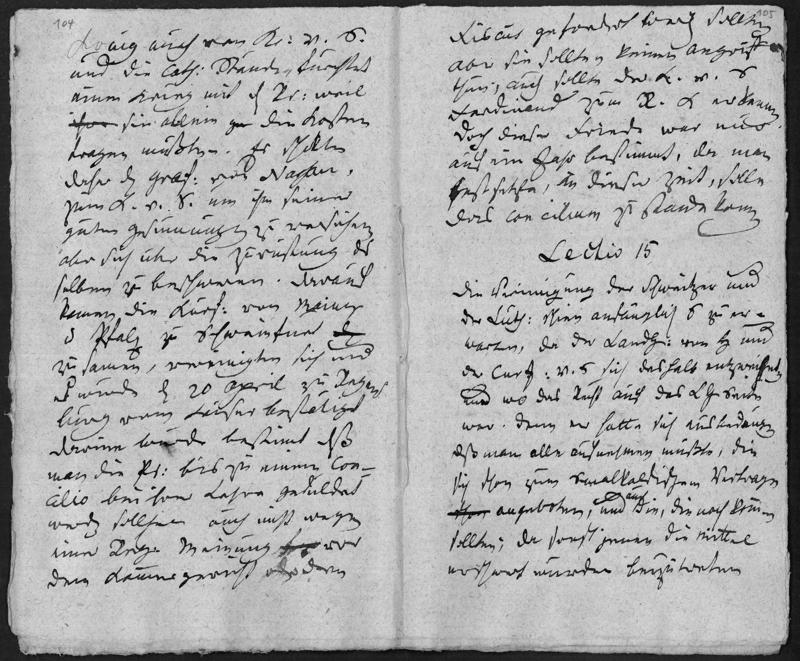 104
König auch von Kr: v. S.
und die Cath: Stände, fürchtet
einen Krieg mit d Pr: weil
sie allein die Kosten
tragen müßten. Er schickte
daher d Graf: von Nassau,
zum K. v. S. um ihn seiner
guten Gesinnungen zu versichern
aber sich über die Zurüstung des
selben zu beschweren. Darauf
kamen die Kurf: von Mainz
d Pfalz zu Schweinfurt
zusammen, vereinigten sich und
es wurde d 20 April zu Regens
burg vom Kaiser bestätigt
Darinn wurde bestimt daß
man die Pr: bis zu einem Con-
cilio bei ihrer Lehre geduldet
werden sollten auch nicht wegen
einer Relig: Meinung vor
dem Kammergericht oder dem
105
Fiscus gefordert werd sollten
aber sie sollten keinen angriff
thun, auch sollte der K. v. S
Ferdinand zum R. K erkennen
Doch dieser Friede war nur
auf ein Jahr bestimmt, da man
festsetzte, in dieser Zeit, solle
das concilium zu stande kom
Lectio 15
Die Vereinigung der Schweitzer und
der Luth: schien anfänglich S zu er=
warten, da der Landg: von H und
der Curf: v. S sich deshalb entzweiet
und wo das Recht auf des LG Seite
war. denn er hatte sich ausbedungen
daß man alle aufnehmen müßte, die
sich schon zum Smalkaldischem Vertrage
angeboten, und auch die, die noch kommen
sollten; da sonst jenen die Mittel
erschwert würden beizutreten